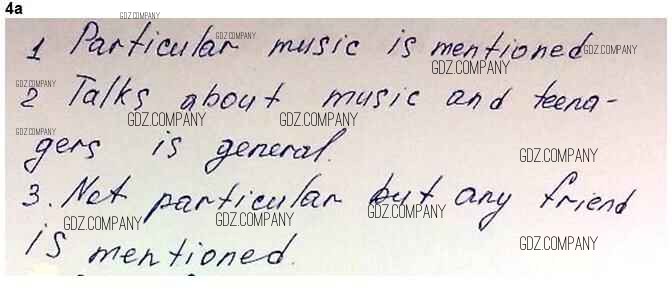 4a
GDZ.COMPANY
1 Particular music is mentioned GDZ.COMPANY
GDZ.COMPANY
GDZ.COMPANY
2 Talks about music and teena-
GDZ.COMPANY GDZ.COMPANY
GDZ.COMPANY
gers is general.
GDZ.COMPANY
3. Not particular but any friend
GDZ.COMPANY GDZ.COMPANY GDZ.COMPANY
is mentioned.
GDZ.COMPANY